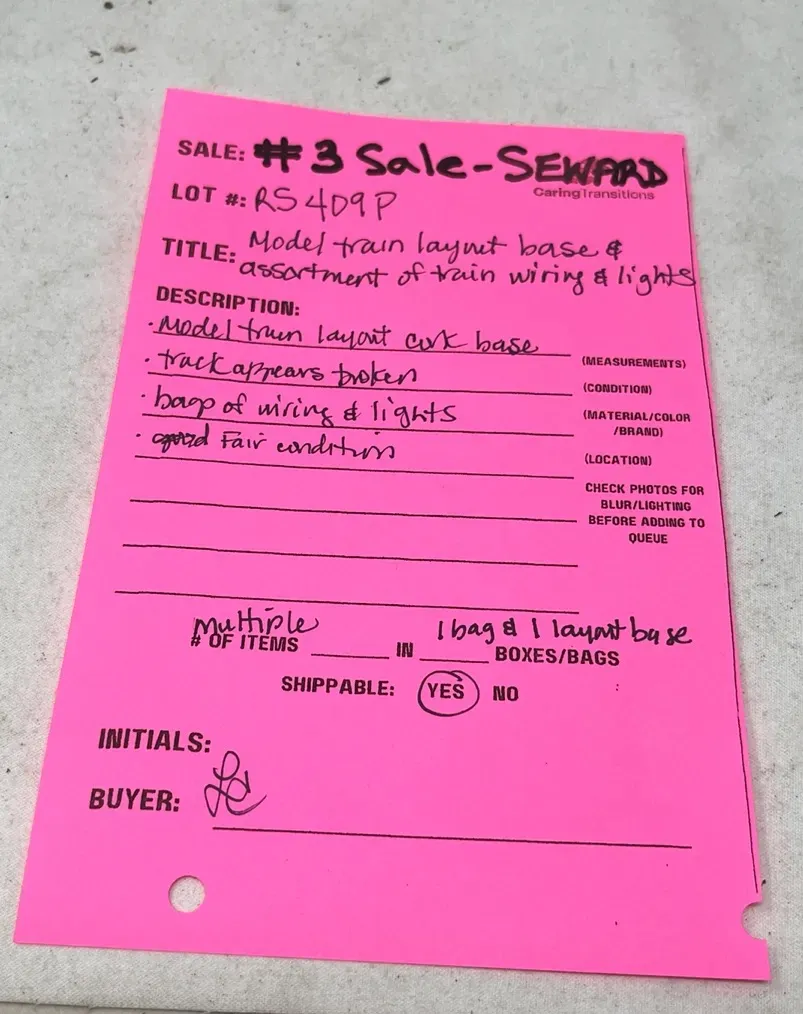 SALE: #3 Sale-SEWARD
CaringTransitions
LOT #: RS409P
TITLE: Model train layout base &
assortment of train wiring & lights
DESCRIPTION:
· Model train layout cork base
(MEASUREMENTS)
· track appears broken
(CONDITION)
· bags of wiring & lights
(MATERIAL/COLOR
/BRAND)
· good Fair condition
(LOCATION)
CHECK PHOTOS FOR
BLUR/LIGHTING
BEFORE ADDING TO
QUEUE
multiple 1 bag & 1 layout base
# OF ITEMS IN BOXES/BAGS
SHIPPABLE: YES NO
INITIALS:
BUYER: